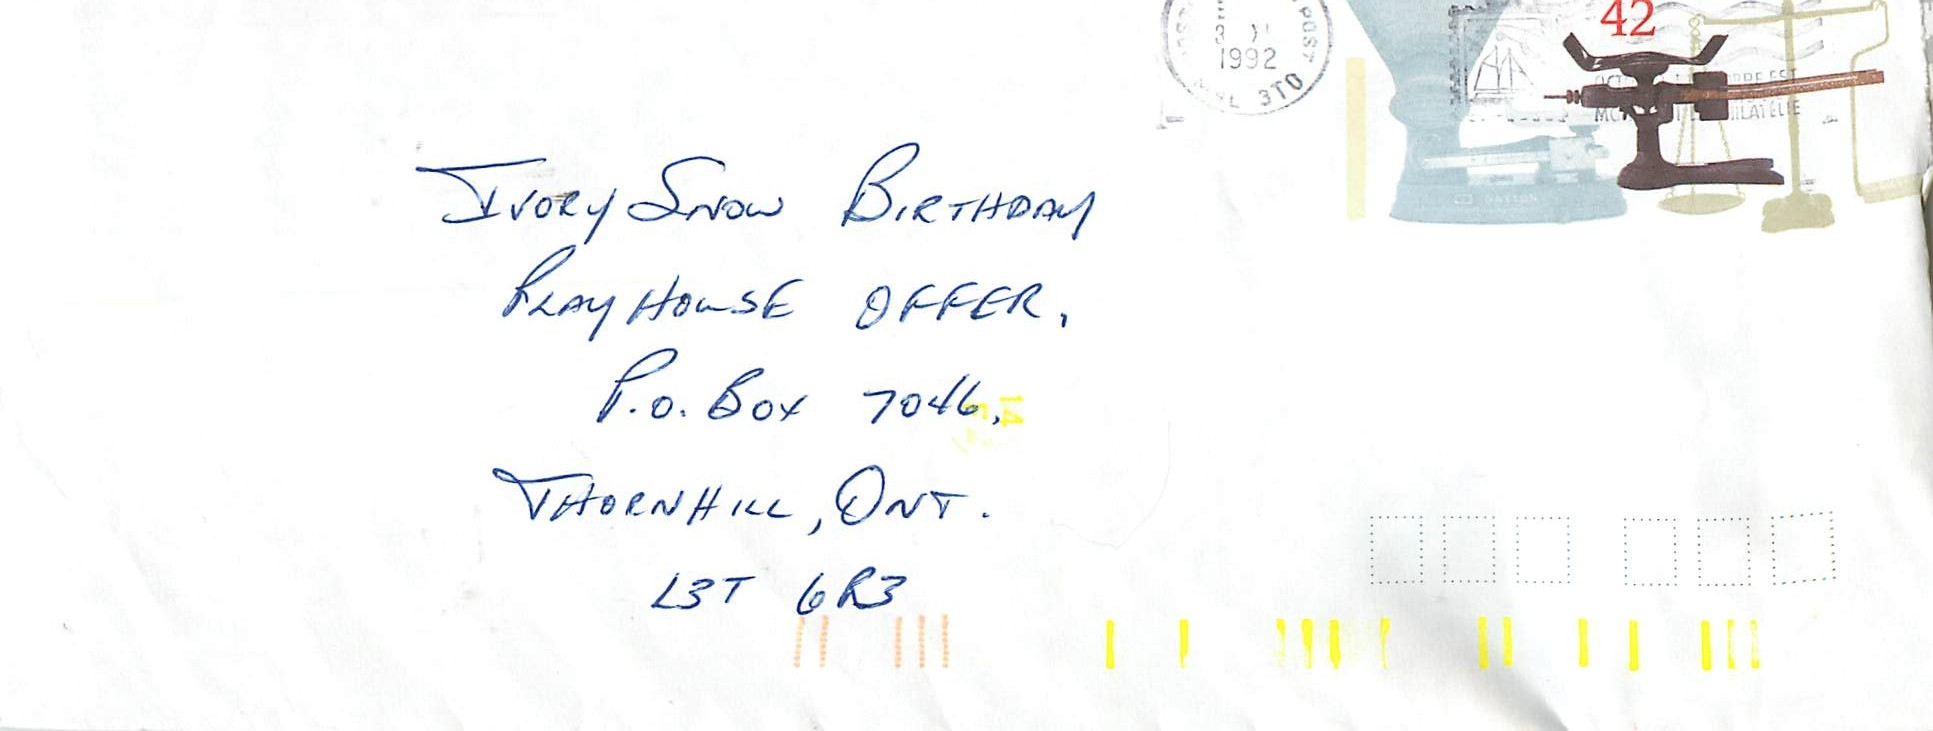 42
POST
1992
3T0
IVORY SNOW BIRTHDAY
PLAYHOUSE OFFER,
P.O. BOX 7046,
THORNHILL, ONT.
L3T 6R3